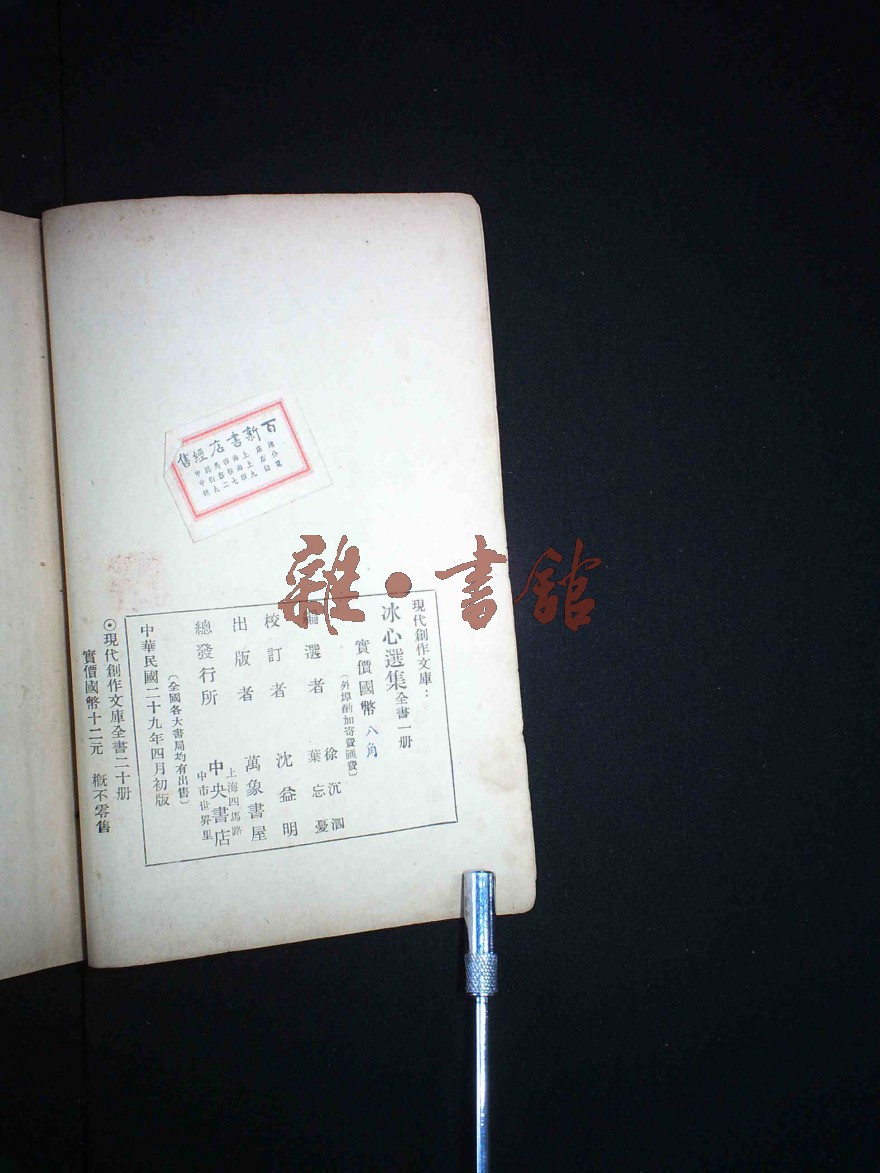 百新書店經售
雜·書館
現代創作文庫：
冰心選集 全書一册
實價國幣 八角
（外埠酌加寄費匯費）
編選者 徐沉泗 葉忘憂
校訂者 沈益明
出版者 萬象書屋
上海四馬路
總發行所 中央書店
中市世界里
〔全國各大書局均有出售〕
中華民國二十九年四月初版
⊙現代創作文庫全書二十册
實價國幣十二元 概不零售